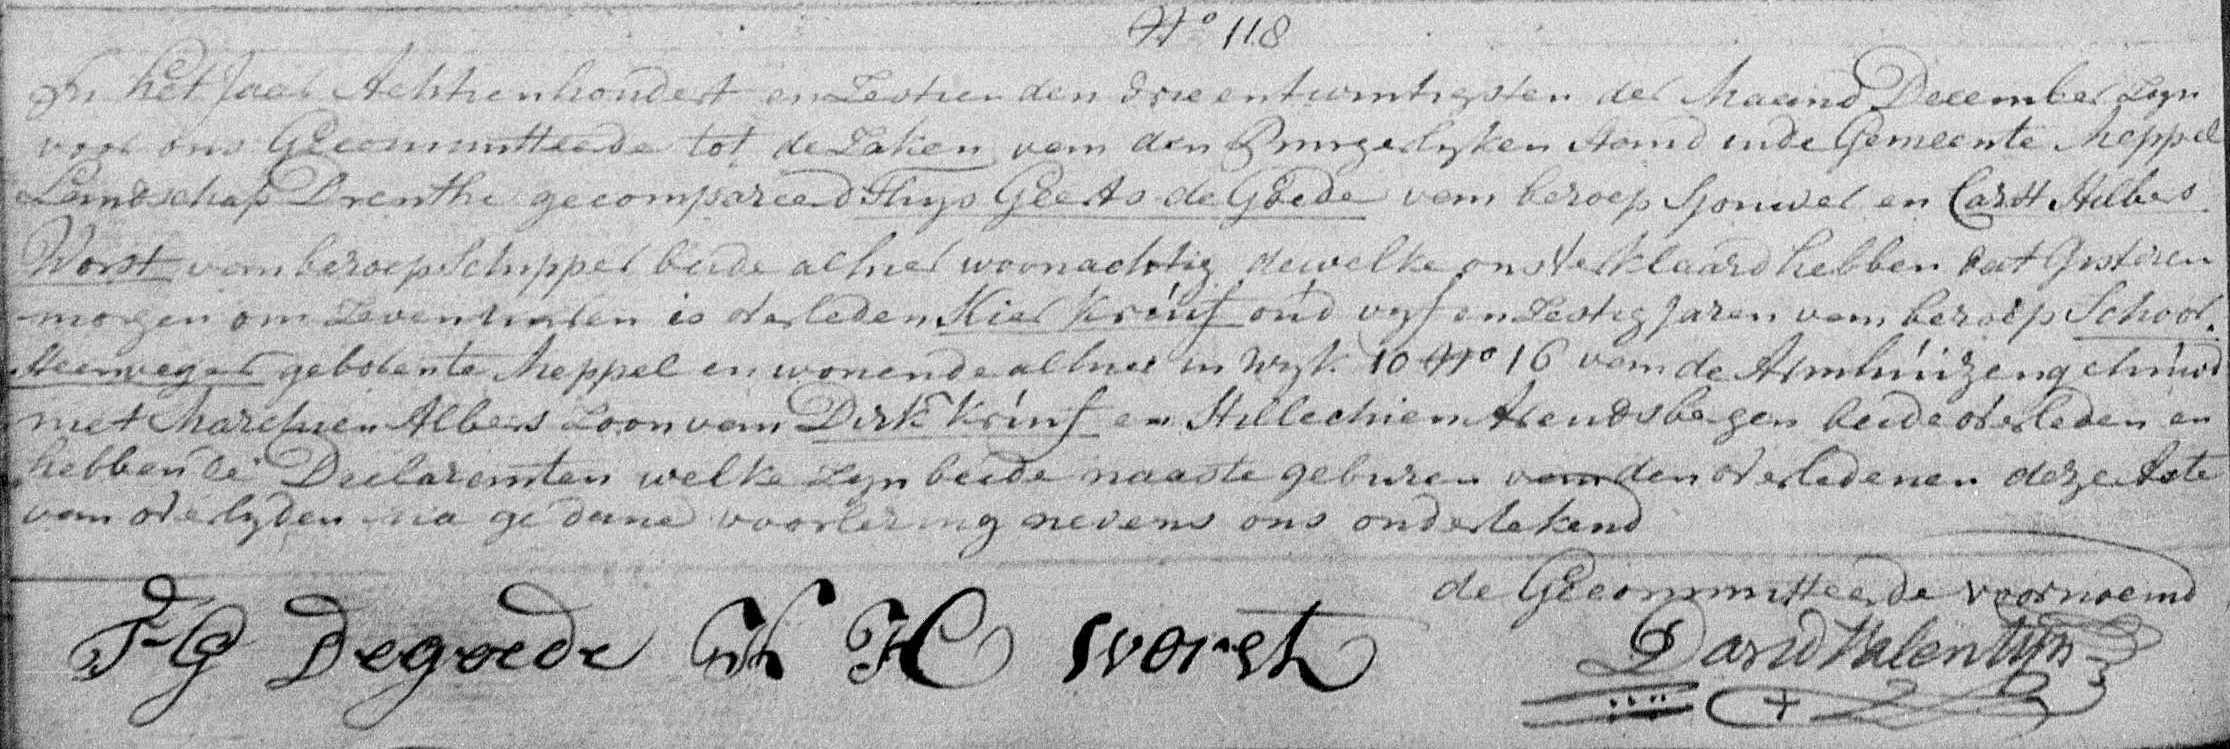 No 118
In het Jaar Achttienhondert en Zestien den drie entwintigsten der Maand December Zyn
voor ons Gecommitteerde tot de Zaken van den Burgerlyken Stand in de Gemeente Meppel
Landschap Drenthe gecompareerd Thys Geerts de Goede van beroep Sjouwer en Carst Hilbers
Worst van beroep Schipper beide alhier woonachtig dewelke ons Verklaard hebben dat Gisteren
morgen om Zeven Uuren is overleden Hier Kruif oud vyf en Zestig Jaren van beroep Schoor.
steenveger geboren te Meppel en wonende alhier in Wyk 10 No 16 van de Armhuizen gehuwd
met Marchien Albers Zoon van Dirk Kruif en Hillechien Arends bergen beide overleden en
hebben de Declaranten welke Zyn beide naaste geburen van den overledenen deze Acte
van overlyden na gedane voorlezing nevens ons onderteekend
de Gecommitteerde voornoemd
T G Degoede K H worst
David Valentyn